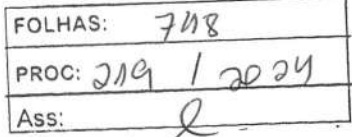 FOLHAS: 748
PROC: 219 / 2024
Ass: